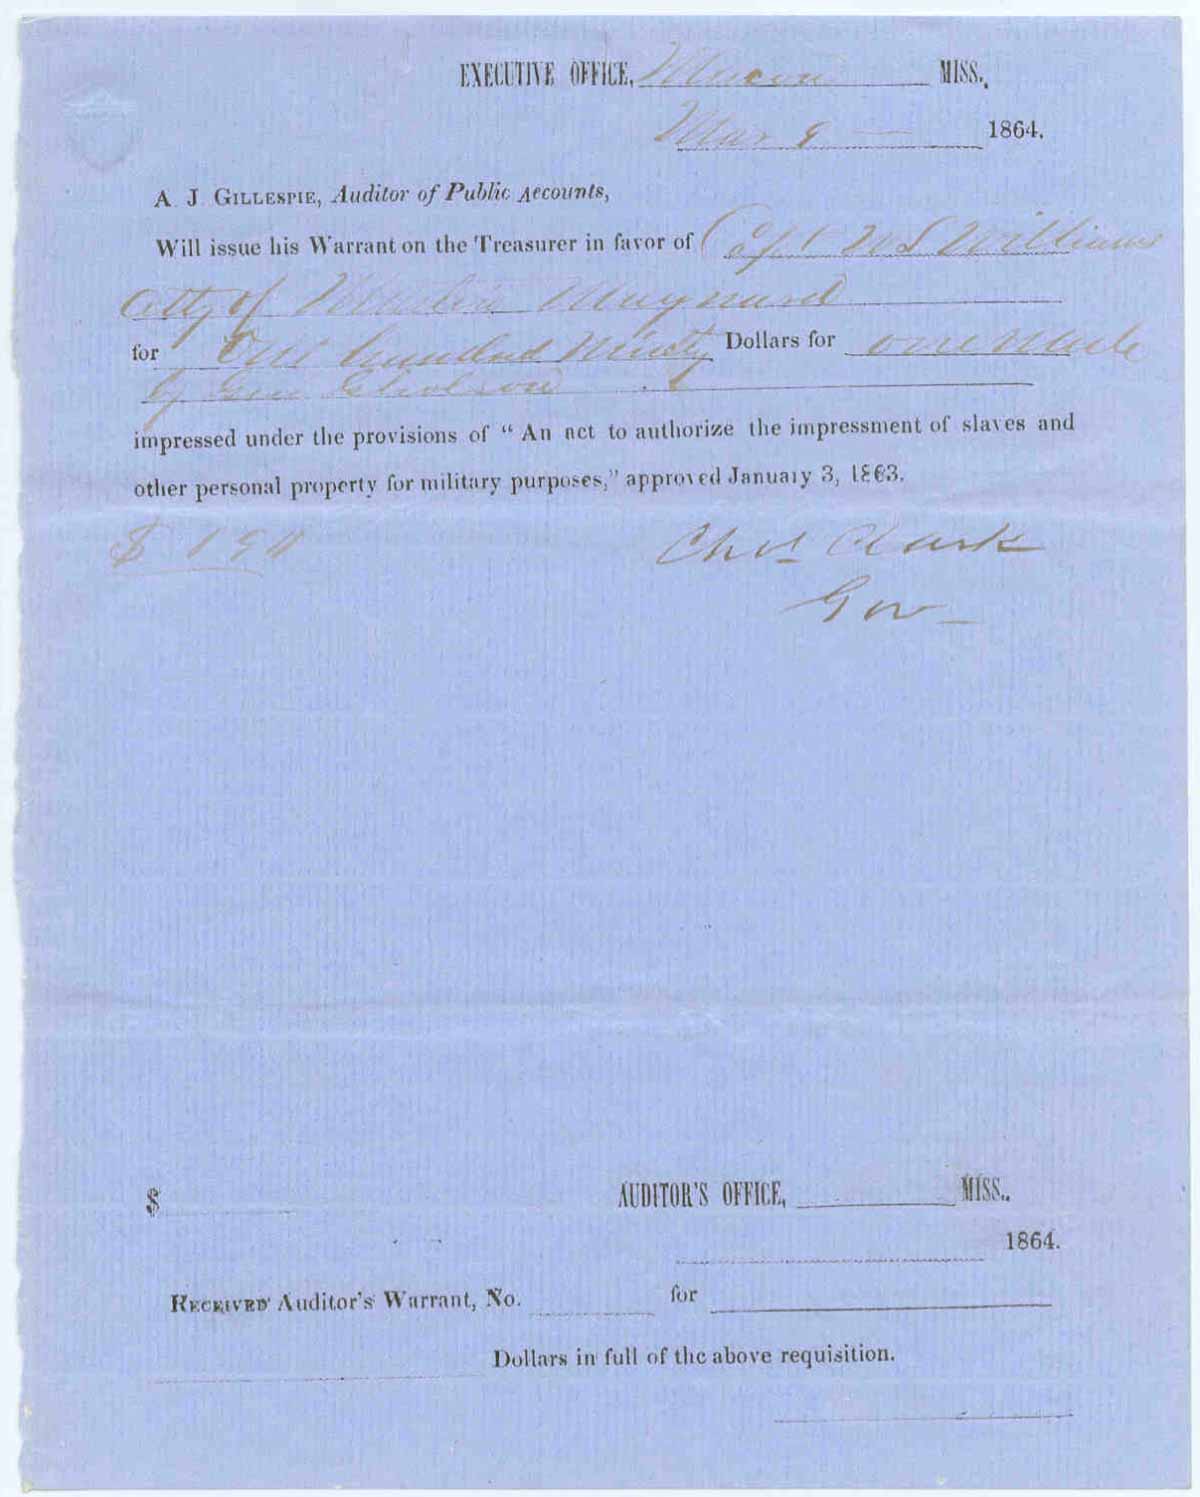 EXECUTIVE OFFICE, Macon MISS.,
Mar 9 1864.
A. J. GILLESPIE, Auditor of Public Accounts,
Will issue his Warrant on the Treasurer in favor of Capt W S Williams
Atty of Maynard
for One hundred Ninety Dollars for one Mule
by Gen Gholson
impressed under the provisions of “ An act to authorize the impressment of slaves and
other personal property for military purposes,” approved January 3, 1863.
$ 190 Chas Clark
Gov
$ AUDITOR'S OFFICE, MISS.,
1864.
RECEIVED Auditor's Warrant, No. for
Dollars in full of the above requisition.